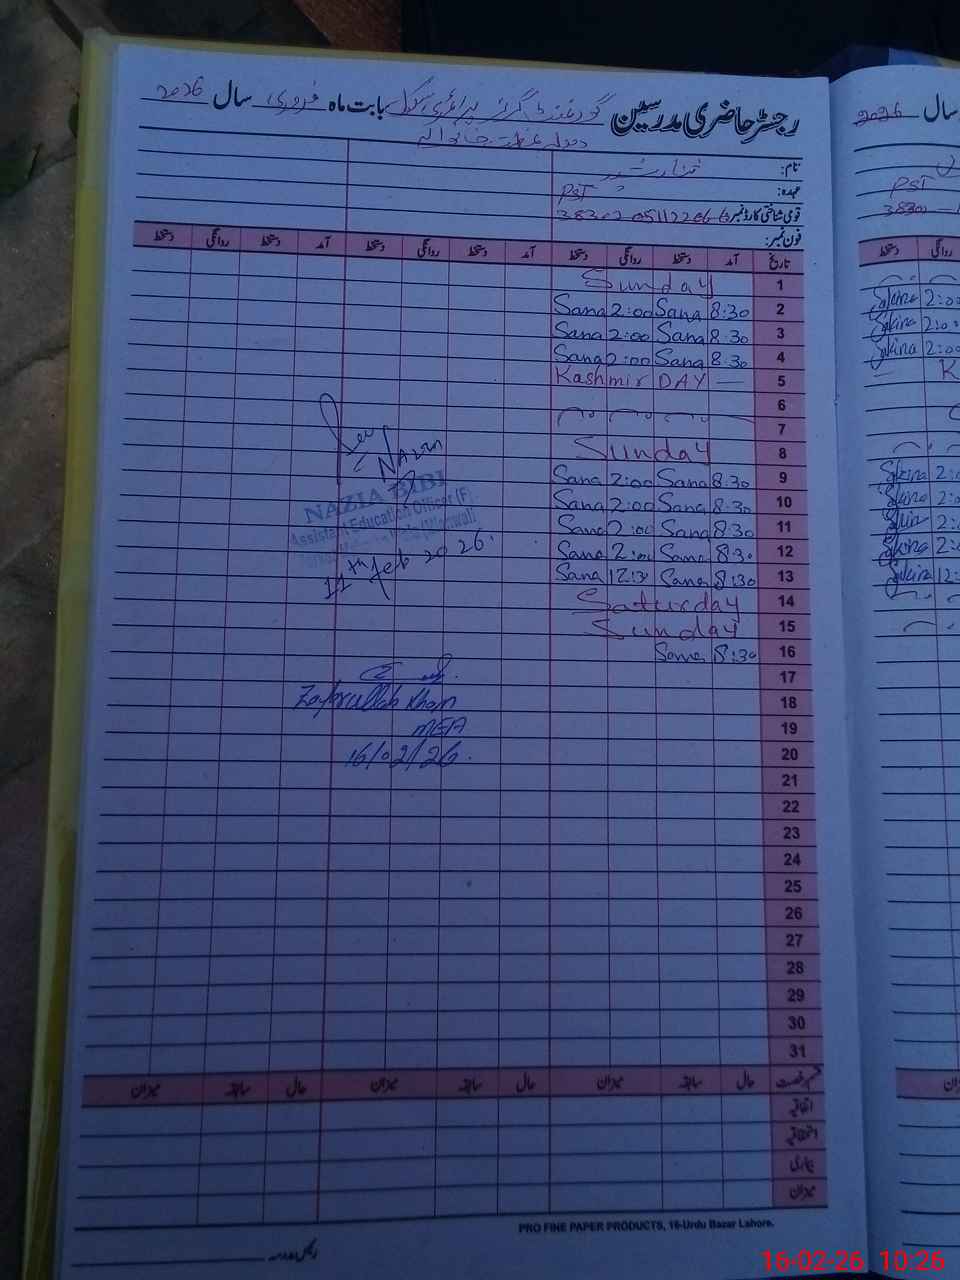 رجسٹر حاضری مدرسین گورنمنٹ گرلز پرائمری سکول بابت ماہ فروری سال 2026
نام:
عہدہ: PST
قومی شناختی کارڈ نمبر: 38302 0511226 6
فون نمبر:
تاریخ آمد دستخط روانگی دستخط آمد دستخط روانگی دستخط آمد دستخط روانگی دستخط
1 Sunday
2 8:30 Sana 2:00 Sana
3 8:30 Sana 2:00 Sana
4 8:30 Sana 2:00 Sana
5 Kashmir DAY —
6
7
8 Sunday
9 8:30 Sana 2:00 Sana
10 8:30 Sana 2:00 Sana
11 8:30 Sana 2:00 Sana
12 8:30 Sana 2:00 Sana
13 8:30 Sana 12:30 Sana
14 Saturday
15 Sunday
16 8:30 Sana
17
18
19
20
21
22
23
24
25
26
27
28
29
30
31
Nazia
NAZIA BIBI
Assistant Education Officer (F)
11th feb 2026.
Zafarullah Khan
MEA
16/02/26.
قسم رخصت حال سابقہ میزان حال سابقہ میزان حال سابقہ میزان
اتفاقیہ
استحقاقیہ
بیماری
میزان
PRO FINE PAPER PRODUCTS, 16-Urdu Bazar Lahore.
رئیس مدرسہ
سال 2026
PST
3830
دستخط روانگی
Sakina 2:00
Sakina 2:00
Sakina 2:00
K
Sakina 2:0
Sakina 2:0
Sakina 2:0
Sakina 2:0
Sakina 12:
16-02-26 10:26